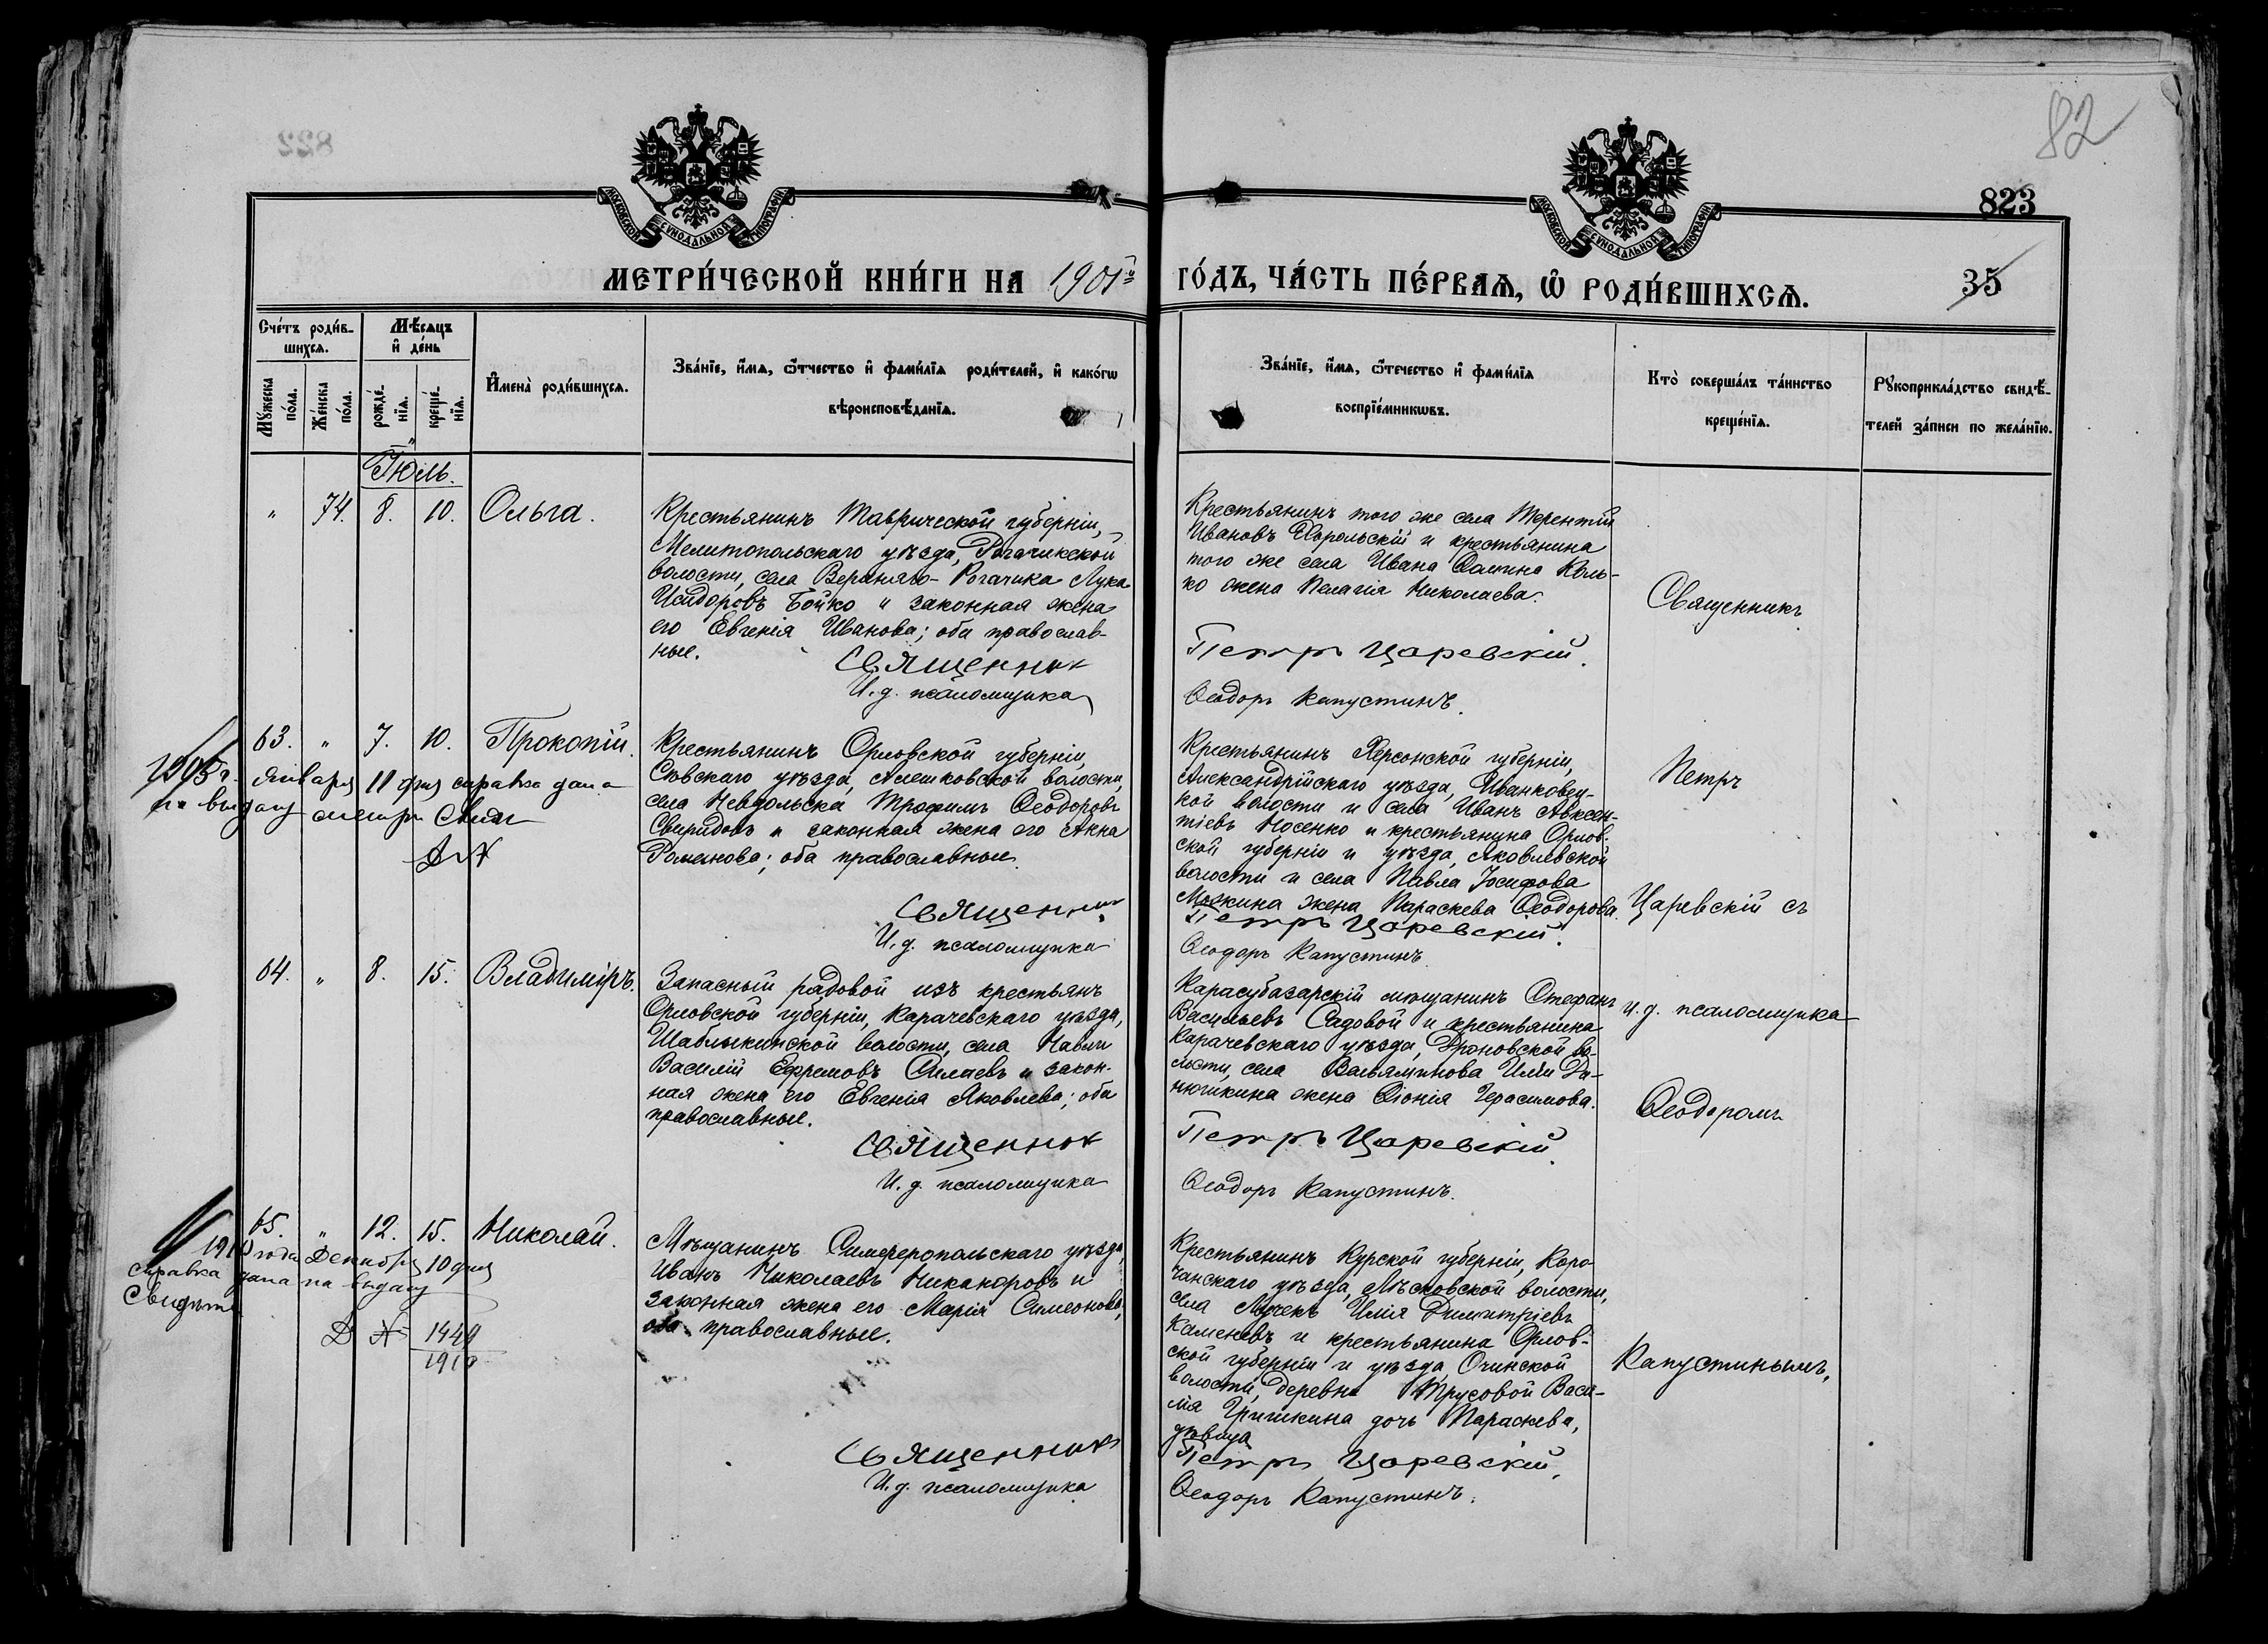 82
823
МОСКОВСКОЙ СУНОДАЛЬНОЙ ТИПОГРАФІИ
МОСКОВСКОЙ СУНОДАЛЬНОЙ ТИПОГРАФІИ
МЕТРИ́ЧЕСКОЙ КНИ́ГИ НА 1901й ГО́ДЪ, ЧА́СТЬ ПЕ́РВАѦ, Ѽ РОДИ́ВШИХСѦ.
35
Сче́тъ роди́в-
шихсѧ.
Мꙋжеска по́ла.
Же́нска по́ла.
Мѣ́сѧцъ
и҆ де́нь
рожде́-
нїѧ.
креще́-
нїѧ.
И҆мена̀ роди́вшихсѧ.
Зва́нїе, и҆́мѧ, ѻ҆́тчество и҆ фами́лїѧ роди́телей, и҆ како́гѡ
вѣроисповѣ́данїѧ.
Зва́нїе, и҆́мѧ, ѻ҆́течество и҆ фами́лїѧ
воспрїе́мникѡвъ.
Кто̀ соверша́лъ та́инство
креще́нїѧ.
Рꙋкоприкла́дство свидѣ́-
телей за́писи по жела́нїю.
Іюль.
" 74. 8. 10. Ольга.
Крестьянинъ Таврической губерніи,
Мелитопольскаго уѣзда, Рогачикской
волости, села Верхняго-Рогачика Лука
Исидоровъ Бойко и законная жена
его Евгенія Иванова; оба православ-
ные.
Священникъ
И. д. псаломщика
Крестьянинъ того же села Терентій
Ивановъ Хорольскій и крестьянина
того же села Ивана Фомина Коль-
ко жена Пелагія Николаева.
Петръ Царевскій.
Ѳеодоръ Капустинъ.
Священникъ
63. " 7. 10. Прокопій.
1905 г. Января 11 дня справка дана
на выдачу метр. Свид.
Крестьянинъ Орловской губерніи,
Сѣвскаго уѣзда, Алешковской волости,
села Невдольска Трофимъ Ѳеодоровъ
Свиридовъ и законная жена его Анна
Романова; оба православные.
Священникъ
И. д. псаломщика
Крестьянинъ Херсонской губерніи,
Александрійскаго уѣзда, Иванковец-
кой волости и села Иванъ Авксен-
тіевъ Носенко и крестьянина Орлов-
ской губерніи и уѣзда, Яковлевской
волости и села Павла Іосифова
Можкина жена Параскева Ѳеодорова.
Петръ Царевскій.
Ѳеодоръ Капустинъ.
Петръ
Царевскій съ
64. " 8. 15. Владиміръ.
Запасный рядовой изъ крестьянъ
Орловской губерніи, Карачевскаго уѣзда,
Шаблыкинской волости, села Навли
Василій Ефремовъ Силаевъ и закон-
ная жена его Евгенія Яковлева; оба
православные.
Священникъ
И. д. псаломщика
Карасубазарскій мѣщанинъ Стефанъ
Васильевъ Садовой и крестьянина
Карачевскаго уѣзда, Дроновской во-
лости, села Вельяминова Ильи Да-
нюшкина жена Ѳіонія Герасимова.
Петръ Царевскій.
Ѳеодоръ Капустинъ.
и. д. псаломщика
Ѳеодоромъ
65. " 12. 15. Николай.
1910 года Декабря 10 дня
справка дана на выдачу
Свидѣт.
Д № 1449
1910
Мѣщанинъ Симферопольскаго уѣзда,
Иванъ Николаевъ Никаноровъ и
законная жена его Марія Симеонова,
оба православные.
Священникъ
И. д. псаломщика
Крестьянинъ Курской губерніи, Коро-
чанскаго уѣзда, Лѣсковской волости,
села Мучекъ Илія Димитріевъ
Каменевъ и крестьянина Орлов-
ской губерніи и уѣзда, Очинской
волости, деревни Трусовой Васи-
лія Гришкина дочь Параскева,
дѣвица
Петръ Царевскій.
Ѳеодоръ Капустинъ.
Капустинымъ.